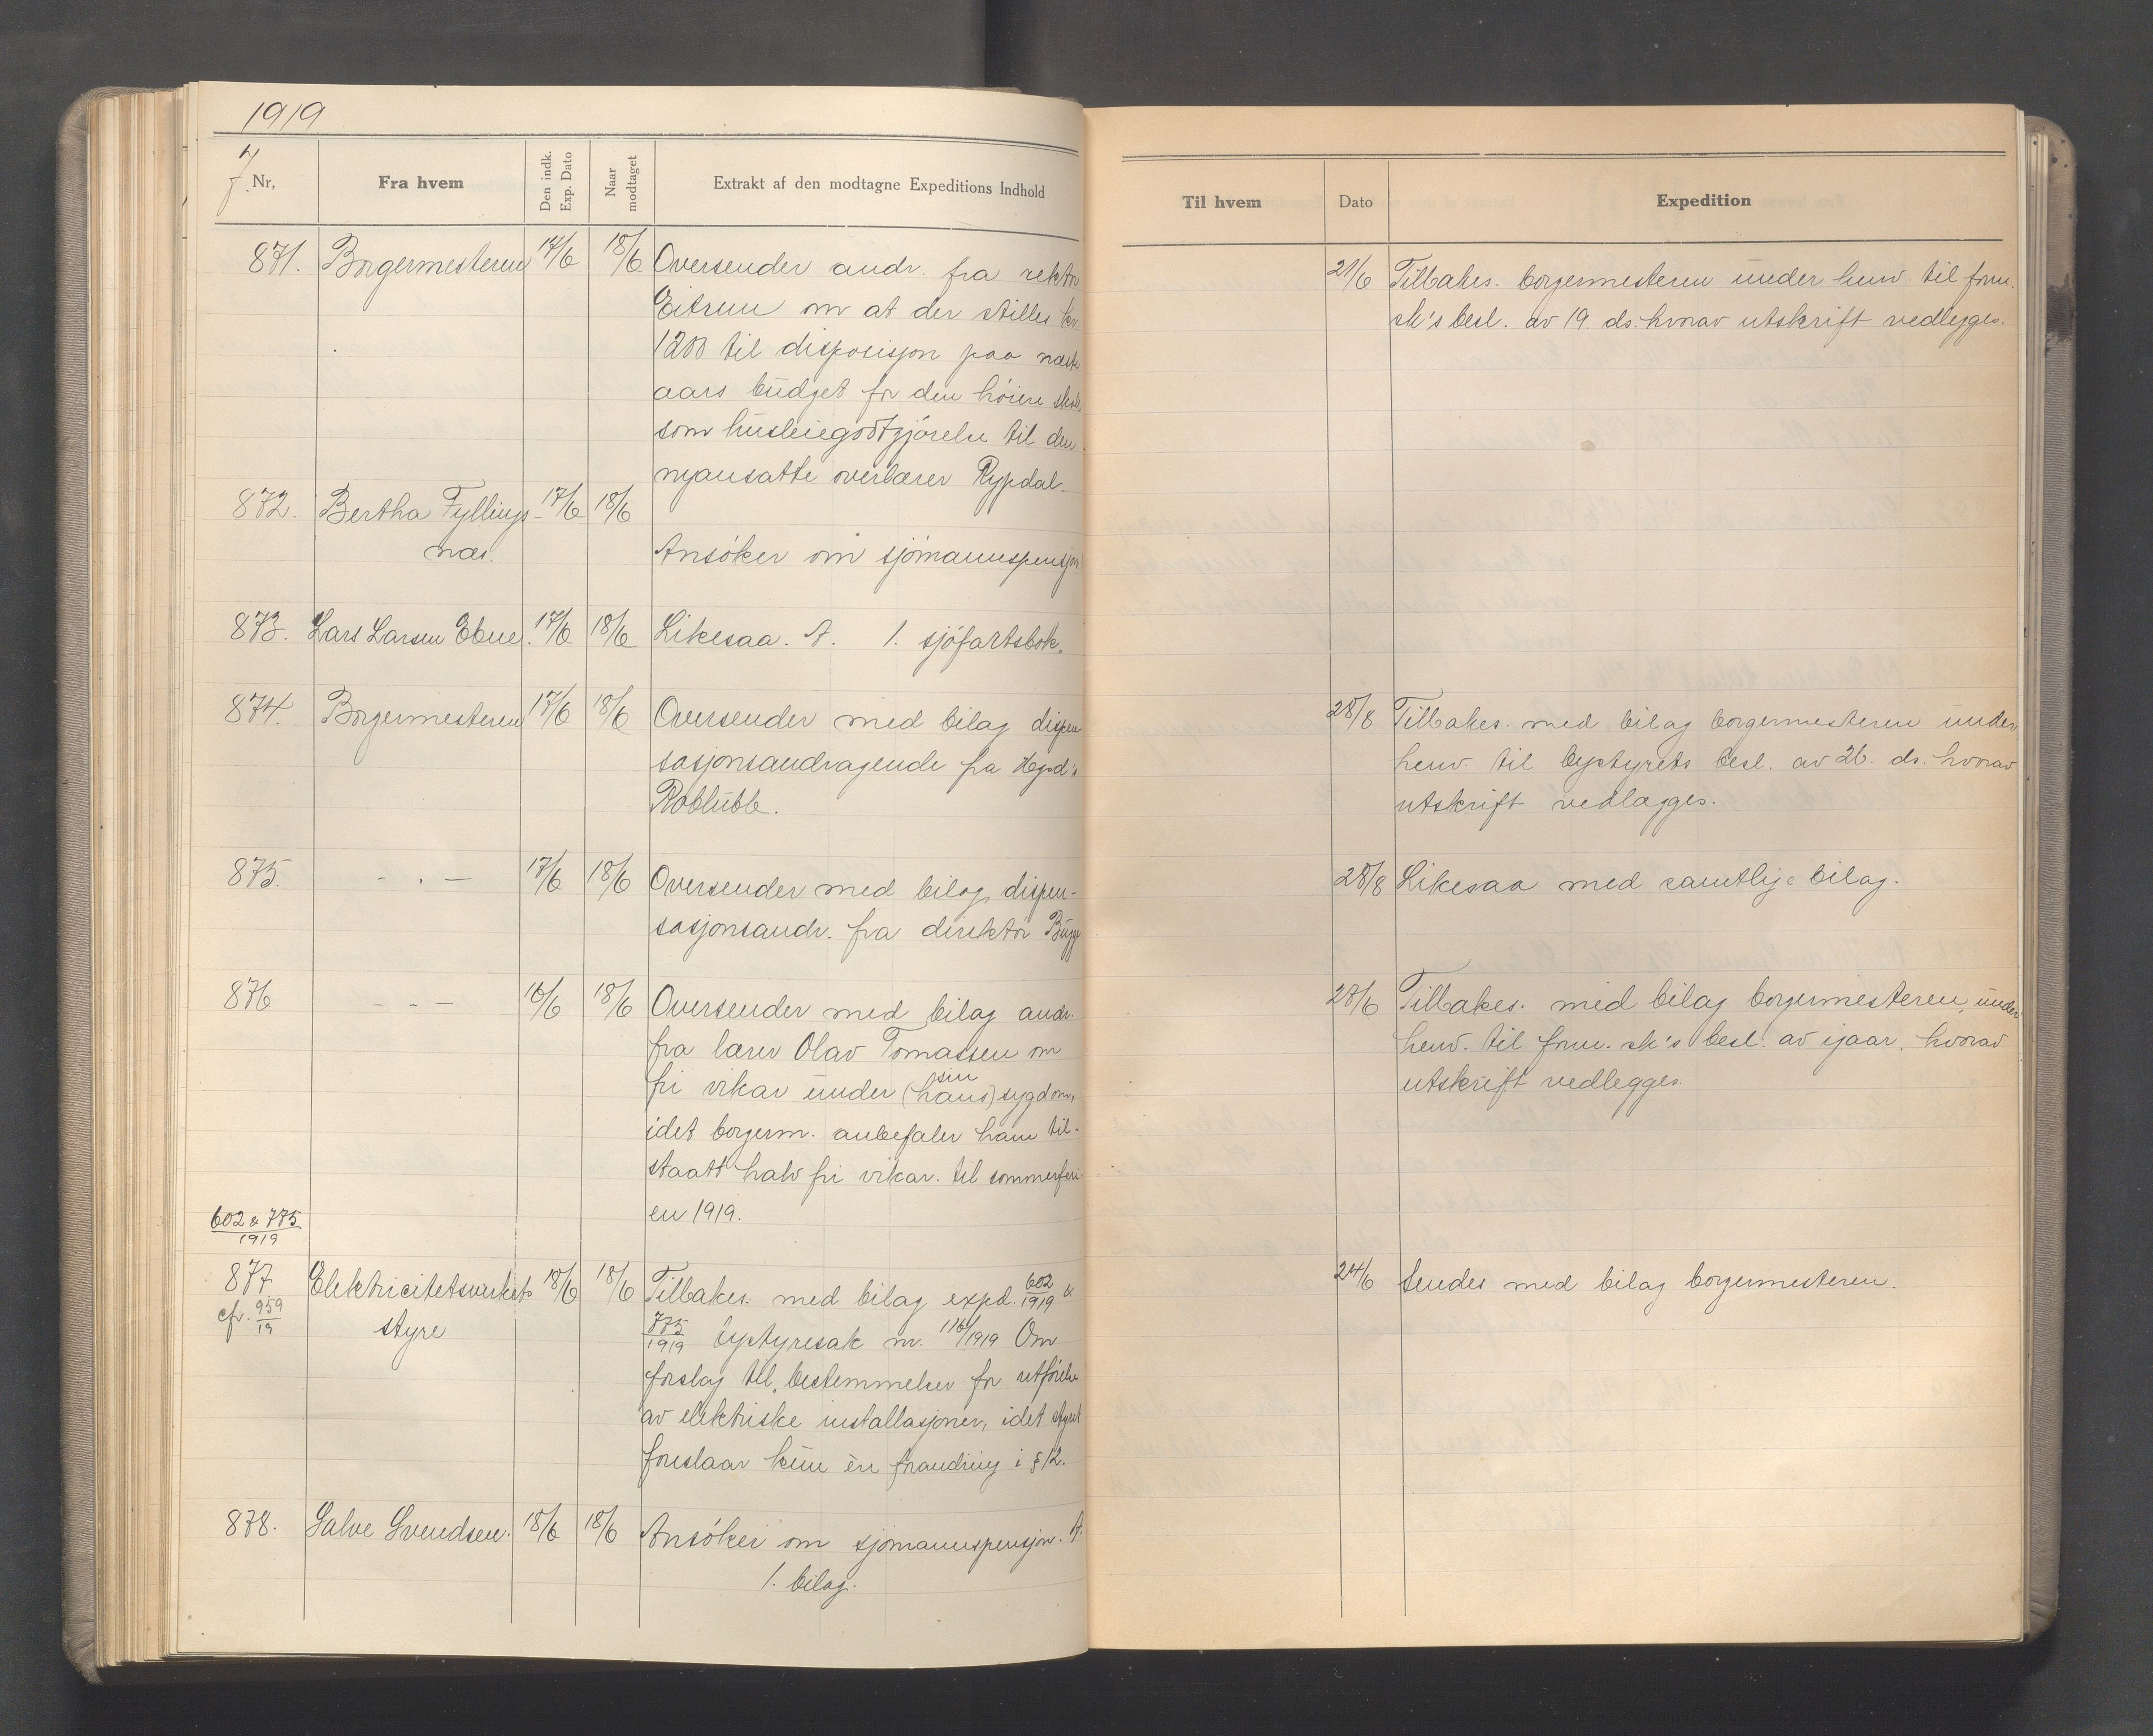 1919
J. Nr,
Fra hvem
Den indk. Exp. Dato
Naar modtaget
Extrakt af den modtagne Expeditions Indhold
871. Borgermesteren 17/6 18/6 Oversender andr. fra rektor
Eitrem om at der stilles kr.
1200 til disposisjon paa næste
aars budget for den høiere skole
som husleiegodtgjørelse til den
nyansatte overlærer Rypdal.
872. Bertha Fyllings- 17/6 18/6
næs.
Ansøker om sjømannspensjon
873. Lars Larsen Ebne. 17/6 18/6 Likesaa. A. 1. sjøfartsbok.
874. Borgermesteren 17/6 18/6 Oversender med bilag dispen
sasjonsandragende fra Hgsd's
Roklubb.
875. - . - 17/6 18/6 Oversender med bilag dispen-
sasjonsandr. fra direktør Bugge
876 - - - 16/6 18/6 Oversender med bilag andr.
fra lærer Olav Tomassen om
sin
fri vikar under (hans) sygdom,
idet borgerm. anbefaler ham til-
staatt halv fri vikar. til sommerferi-
en 1919.
602 & 775
1919
877 Elektricitetsverkets 18/6 18/6 Tilbakes. med bilag expd. 602/1919 &
cfr. 959/19 styre
775/1919 bystyresak nr. 116/1919 Om
forslag til bestemmelser for utførelse
av elektriske installasjoner, idet styret
foreslaar kun èn forandring i § 12.
878. Salve Svendsen. 18/6 18/6 Ansøker om sjømannspensjon. A.
1. bilag.
Til hvem
Dato
Expedition
21/6 Tilbakes. borgermesteren under henv. til form.
sk's besl. av 19. ds. hvorav utskrift vedlegges.
28/8 Tilbakes. med bilag borgermesteren under
henv. til bystyrets besl. av 26. ds. hvorav
utskrift vedlægges.
28/8 Likesaa med samtlige bilag.
28/6 Tilbakes. med bilag borgermesteren, under
henv. til form. sk's besl. av igaar, hvorav
utskrift vedlegges.
24/6 Sendes med bilag borgermesteren.